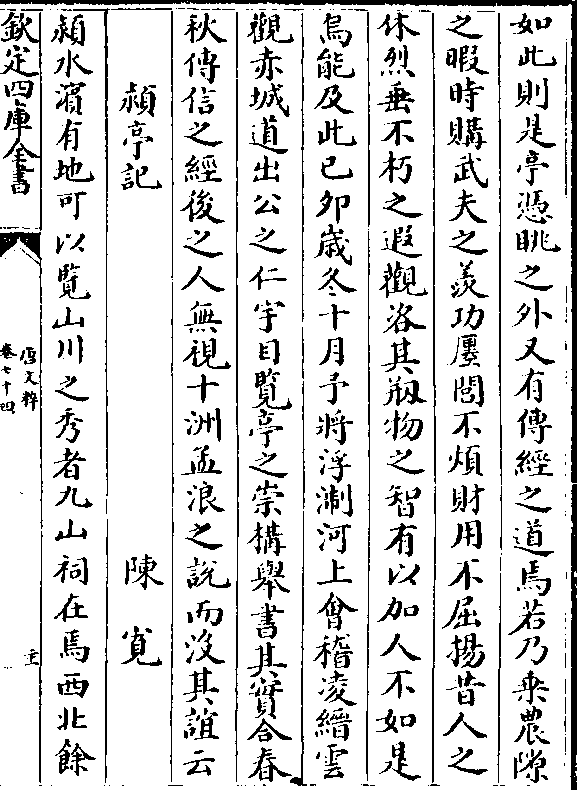 如此則是亭憑眺之外又有傳經之道焉若乃乗農隙
之暇時購武夫之羨功廛閭不煩財用不屈揚昔人之
休烈垂不朽之遐觀洛其剏物之智有以加人不如是
烏能及此已卯歳冬十月予將浮淛河上會稽凌縉雲
觀赤城道出公之仁宇目覽亭之崇構舉書其實合春
秋傳信之經後之人無視十洲孟浪之說而没其誼云
潁亭記　陳寛
潁水濱有地可以覽山川之秀者九山祠在焉西北餘
欽定四庫全書
唐文粹
卷七十四